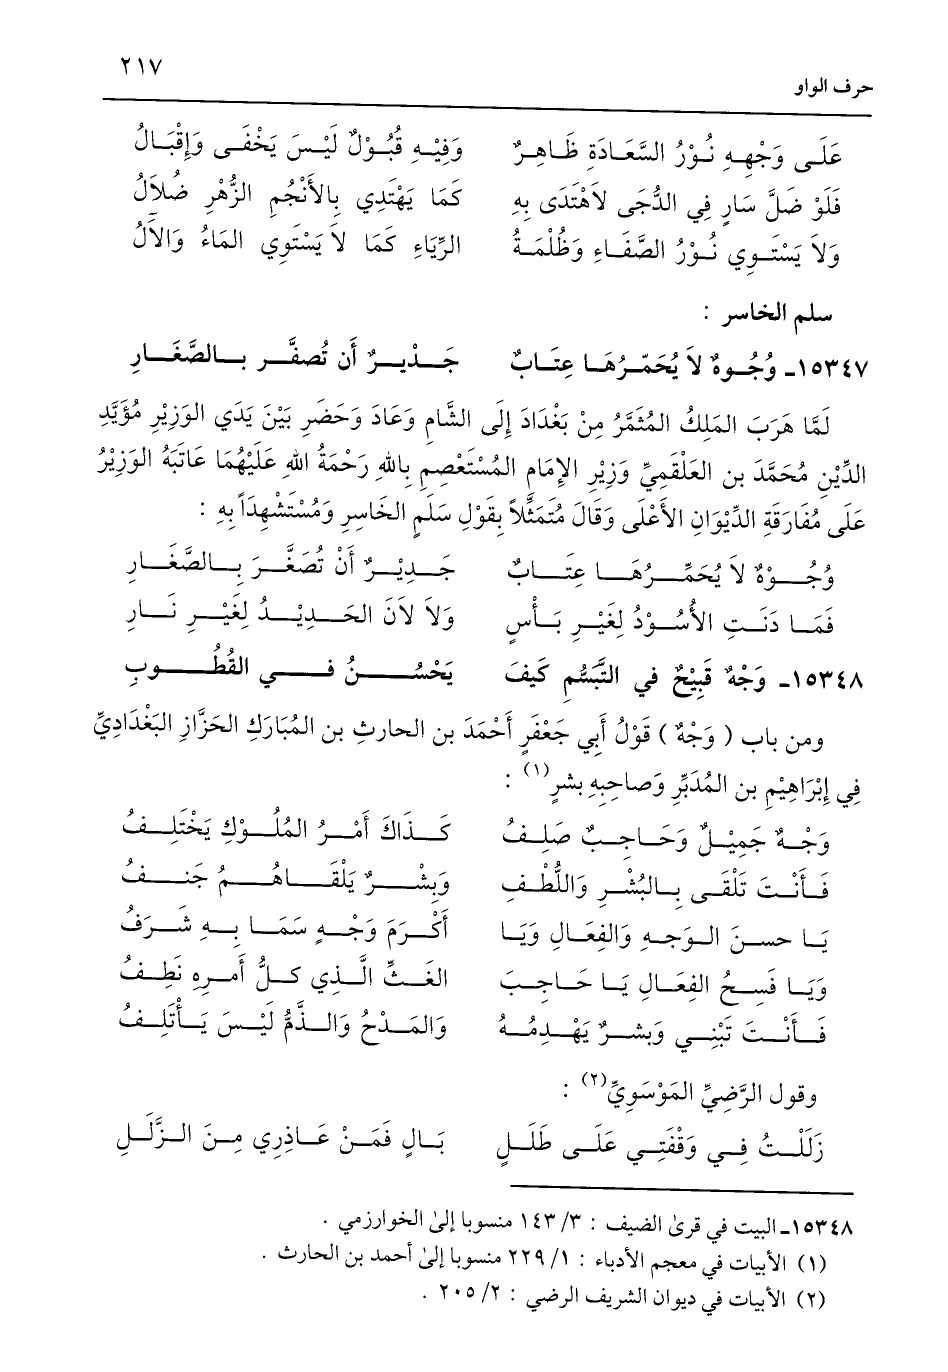 ٢١٧
حرف الواو
عَلَى وَجْهِهِ نُوْرُ السَّعَادَةِ ظَاهِرٌ وَفِيْهِ قُبُوْلٌ لَيْسَ يَخْفَى وَإِقْبَالُ
فَلَوْ ضَلَّ سَارٍ فِي الدُّجَى لاَهْتَدَى بِهِ كَمَا يَهْتَدِي بِالأَنْجُمِ الزُّهْرِ ضُلاَلُ
وَلاَ يَسْتَوِي نُوْرُ الصَّفَاءِ وَظُلْمَةُ الرِّيَاءِ كَمَا لاَ يَسْتَوِي المَاءُ وَالآلُ
سلم الخاسر :
١٥٣٤٧ـ وُجُوهٌ لاَ يُحَمّرُهَا عِتَابٌ جَدْيرٌ أَن تُصفَّر بالصَّغَارِ
لَمَّا هَرَبَ المَلِكُ المُثَمَّرُ مِنْ بَغْدَادَ إِلَى الشَّامِ وَعَادَ وَحَضَرِ بَيْنَ يَدَي الوَزِيْرِ مُؤَيَّدِ
الدِّيْنِ مُحَمَّدَ بن العَلْقَمِيِّ وَزِيْرِ الإِمَامِ المُسْتَعْصِمِ بِاللهِ رَحْمَةُ اللهِ عَلَيْهُمَا عَاتَبَهُ الوَزِيْرُ
عَلَى مُفَارَقَةِ الدِّيْوَانِ الأَعْلَى وَقَالَ مُتَمَثِّلاً بِقَوْلِ سَلَمِ الخَاسِرِ وَمُسْتَشْهِدَاً بِهِ :
وُجُوْهٌ لاَ يُحَمِّرُهَا عِتَابٌ جَدِيْرٌ أَنْ تُصَغَّرَ بِالصَّغَارِ
فَمَا دَنَتِ الأُسُوْدُ لِغَيْرِ بَأْسٍ وَلاَ لاَنَ الحَدِيْدُ لِغَيْرِ نَارِ
١٥٣٤٨ـ وَجْهٌ قَبِيْحٌ في التَّبَسُّمِ كَيفَ يَحْسُنُ في القُطُوبِ
ومن باب ( وَجْهٌ ) قَوْلُ أَبِي جَعْفَرٍ أَحْمَدَ بن الحارثِ بن المُبَارَكِ الخَزَّازِ البَغْدَادِيِّ
فِي إِبْرَاهِيْمِ بن المُدَبِّرِ وَصَاحِبِهِ بشرٍ (١) :
وَجْهٌ جَمِيْلٌ وَحَاجِبٌ صَلِفُ كَذَاكَ أَمْرُ المُلُوْكِ يَخْتَلِفُ
فَأَنْتَ تَلْقَى بِالبُشْرِ وَاللُّطْفِ وَبِشْرٌ يَلْقَاهُمُ جَنَفُ
يَا حسنَ الوَجهِ وَالفِعَالِ وَيَا أَكْرَمَ وَجْهٍ سَمَا بِهِ شَرَفُ
وَيَا قَبِيْحُ الفِعَالِ يَا حَاجِبَ الغَثِّ الَّذِي كلُّ أَمرِهِ نَطِفُ
فَأَنْتَ تَبْنِي وَبشرٌ يَهْدِمُهُ وَالمَدْحُ وَالذَّمُّ لَيْسَ يَأْتَلِفُ
وقول الرَّضِيِّ المَوْسَوِيِّ (٢) :
زَلَلْتُ فِي وَقْفَتِي عَلَى طَلَلٍ بَالٍ فَمَنْ عَاذِرِي مِنَ الزَّلَلِ
١٥٣٤٨ـ البيت في قرى الضيف : ٣/ ١٤٣ منسوبا إلى الخوارزمي .
(١) الأبيات في معجم الأدباء : ١/ ٢٢٩ منسوبا إلى أحمد بن الحارث .
(٢) الأبيات في ديوان الشريف الرضي : ٢/ ٢٠٥ .